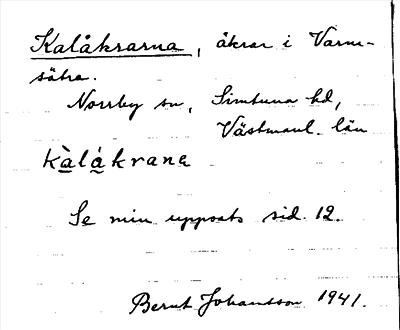 Kalåkrarna, åkrar i Varm-
sätra.
Norrby sn, Simtuna hd,
Västmanl. län
kàlákrana
Se min uppsats sid. 12.
Bernt Johansson 1941.